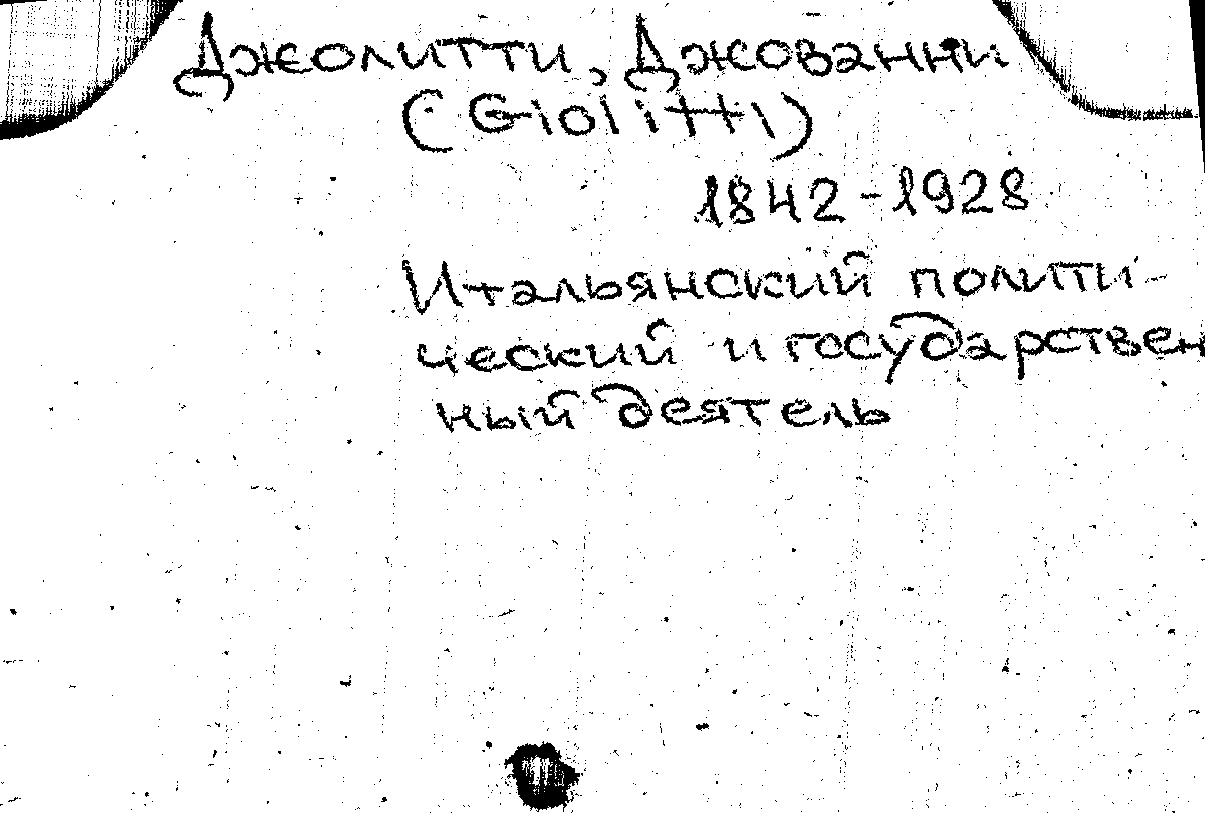 Джолитти, Джованни
(Giolitti)
1842-1928
Итальянский полити-
ческий и государствен
ный деятель